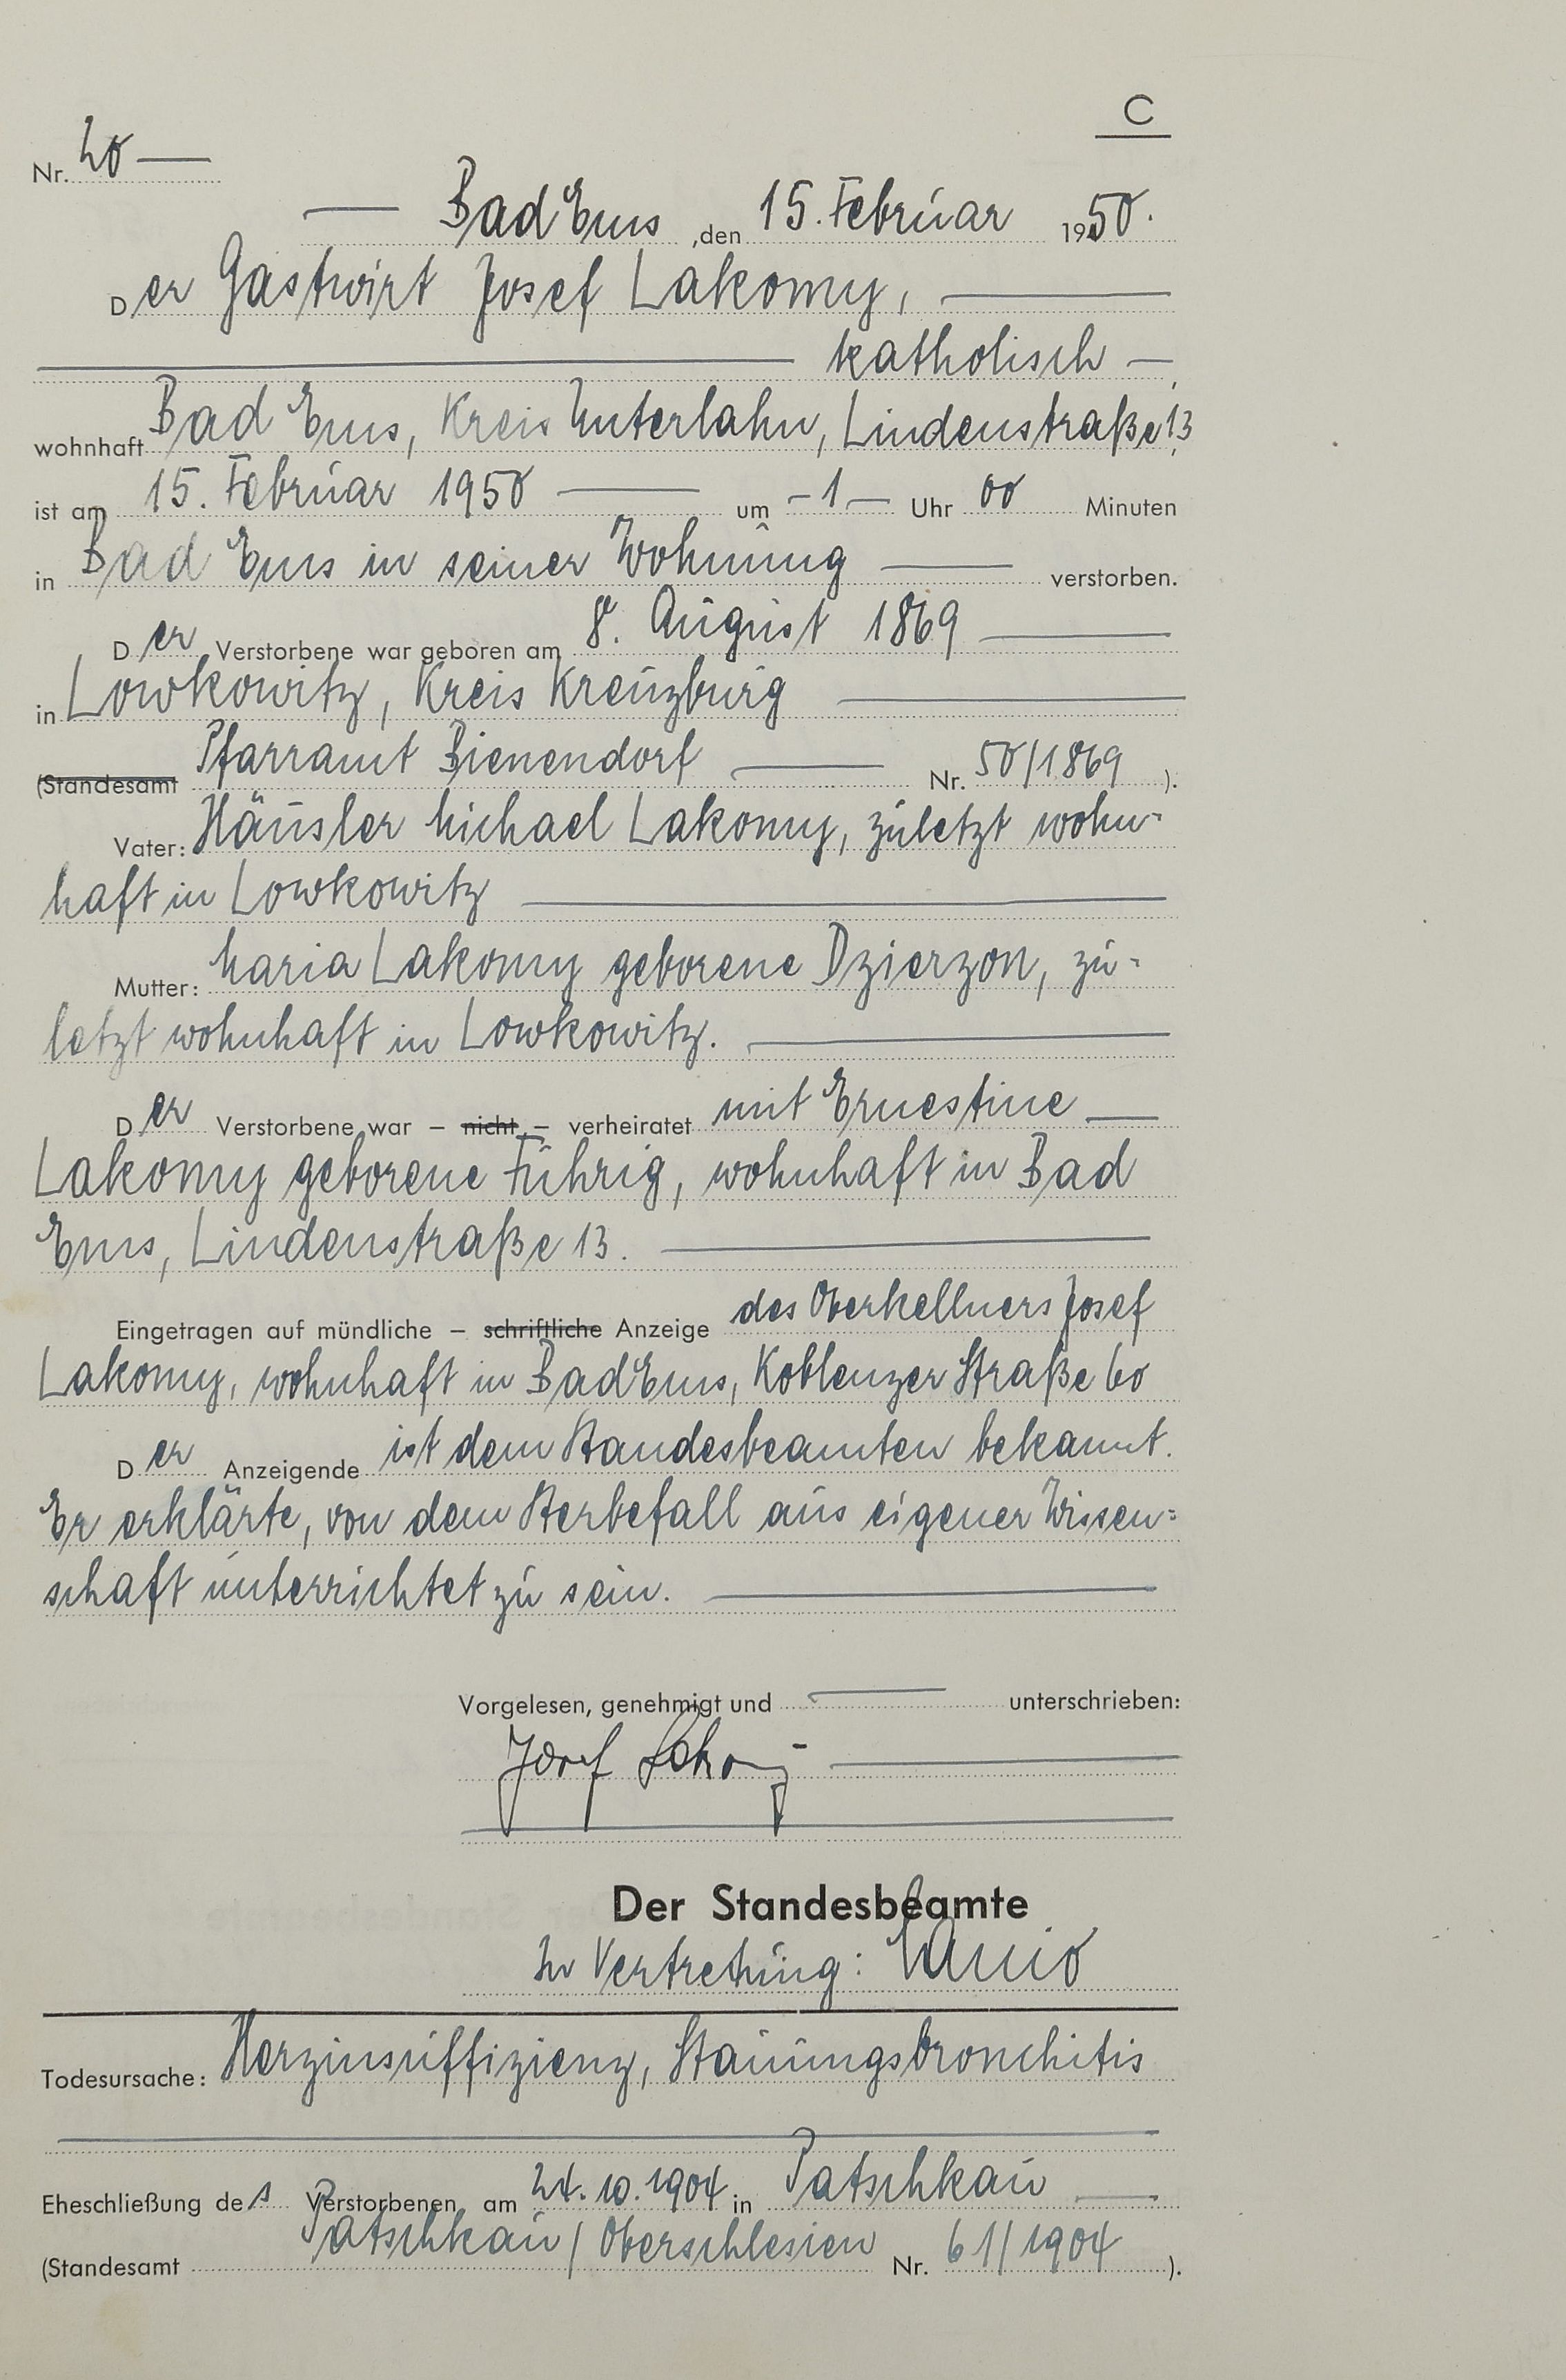 C
Nr. 20
Bad Ems, den 15. Februar 1950.
Der Gastwirt Josef Lakomy,
katholisch,
wohnhaft Bad Ems, Kreis Unterlahn, Lindenstraße 13,
ist am 15. Februar 1950 um 1 Uhr 00 Minuten
in Bad Ems in seiner Wohnung verstorben.
Der Verstorbene war geboren am 8. August 1869
in Lowkowitz, Kreis Kreuzburg
(Standesamt Pfarramt Bienendorf Nr. 50/1869).
Vater: Häusler Michael Lakomy, zuletzt wohn-
haft in Lowkowitz
Mutter: Maria Lakomy geborene Dzierzon, zu-
letzt wohnhaft in Lowkowitz.
Der Verstorbene war – nicht – verheiratet mit Ernestine
Lakomy geborene Führig, wohnhaft in Bad
Ems, Lindenstraße 13.
Eingetragen auf mündliche – schriftliche Anzeige des Oberkellners Josef
Lakomy, wohnhaft in Bad Ems, Koblenzer Straße 60
Der Anzeigende ist dem Standesbeamten bekannt.
Er erklärte, von dem Sterbefall aus eigener Wissen-
schaft unterrichtet zu sein.
Vorgelesen, genehmigt und unterschrieben:
Josef Lakomy
Der Standesbeamte
In Vertretung:
Todesursache: Herzinsuffizienz, Stauungsbronchitis
Eheschließung des Verstorbenen am 24.10.1904 in Patschkau
(Standesamt Patschkau / Oberschlesien Nr. 61/1904).